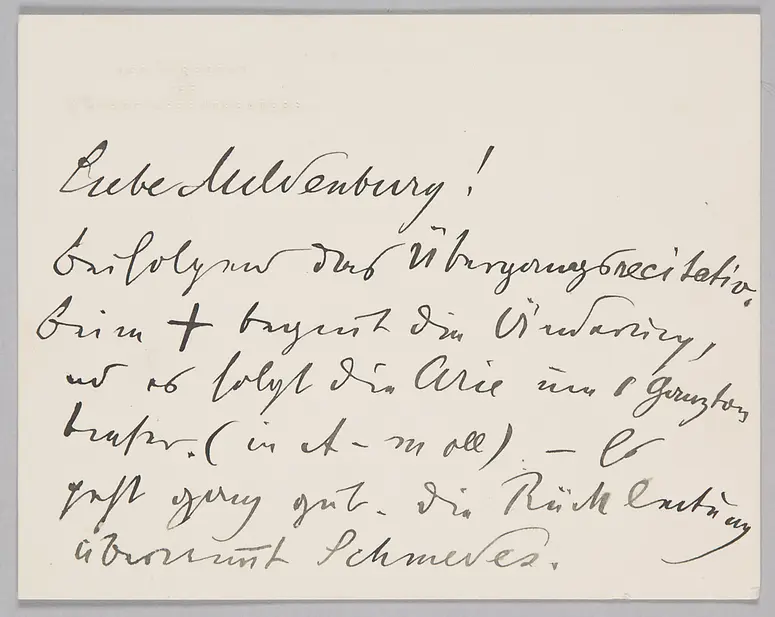 Liebe Mildenburg!
Beifolgend das Übergangsrecitativ.
Beim + beginnt die Änderung,
und es folgt die Arie um 1 Ganzton
tiefer. (in A-moll) – Es
geht ganz gut. Die Rückleitung
übernimmt Schmedes.